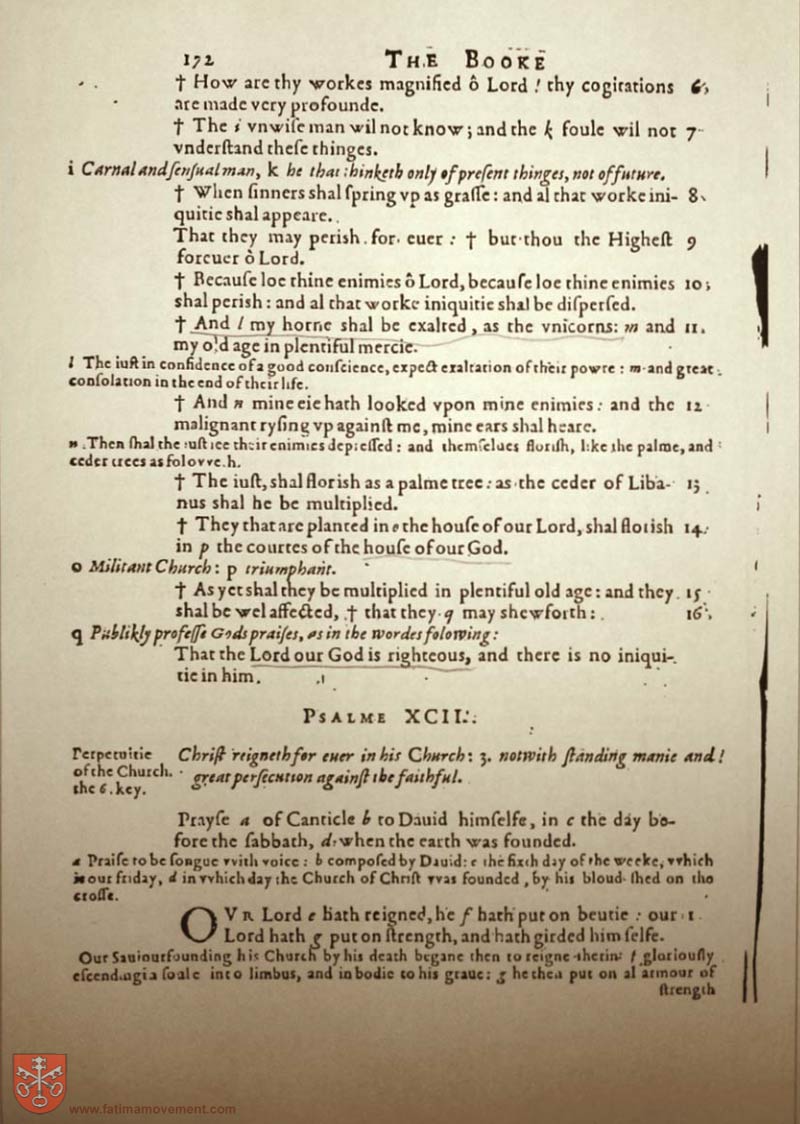 172 THE BOOKE
† How are thy workes magnified ô Lord! thy cogitations 6
are made very profounde.
† The i vnwise man wil not know; and the k foule wil not 7
vnderſtand theſe thinges.
i Carnal and ſenſual man, k he that thinketh only of preſent thinges, not of future.
† When ſinners shal ſpring vp as graſſe: and al that worke ini- 8
quitie shal appeare.
That they may perish for euer: † but thou the Higheſt 9
foreuer ô Lord.
† Becauſe loe thine enimies ô Lord, becauſe loe thine enimies 10
shal perish: and al that worke iniquitie shal be diſperſed.
† And l my horne shal be exalted, as the vnicorns: m and 11.
my old age in plentiful mercie.
l The iuſt in confidence of a good conſcience, expect exaltation of their powre: m and great
conſolation in the end of their life.
† And n mine eie hath looked vpon mine enimies: and the 12
malignant ryſing vp againſt me, mine ears shal heare.
n Then ſhal the iuſt ſee their enimies depreſſed: and themſelues floriſh, like the palme, and
ceder trees as folovveth.
† The iuſt, shal florish as a palme tree: as the ceder of Liba- 13
nus shal he be multiplied.
† They that are planted in o the houſe of our Lord, shal florish 14.
in p the courtes of the houſe of our God.
o Militant Church: p triumphant.
† As yet shal they be multiplied in plentiful old age: and they 15
shal be wel affected, † that they q may shewforth: 16
q Publikly profeſſe Gods praiſes, as in the wordes folowing:
That the Lord our God is righteous, and there is no iniqui-
tie in him.
PSALME XCII.
Perpetuitie
of the Church.
the 6. key.
Chriſt reigneth for euer in his Church: 3. notwithſtanding manie and
great perſecution againſt the faithful.
Prayſe a of Canticle b to Dauid himſelfe, in c the day be-
fore the ſabbath, d when the earth was founded.
a Praiſe to be ſongue vvith voice: b compoſed by Dauid: c the ſixth day of the weeke, vvhich
is our friday, d in vvhich day the Church of Chriſt vvas founded, by his bloud ſhed on the
croſſe.
OVR Lord e hath reigned, he f hath put on beutie: our 1
Lord hath g put on ſtrength, and hath girded him ſelfe.
Our Sauiour founding his Church by his death begane then to reigne therin: f gloriouſly
eſcending in ſoule into limbus, and in bodie to his graue: g he then put on al armour of
ſtrength
www.fatimamovement.com